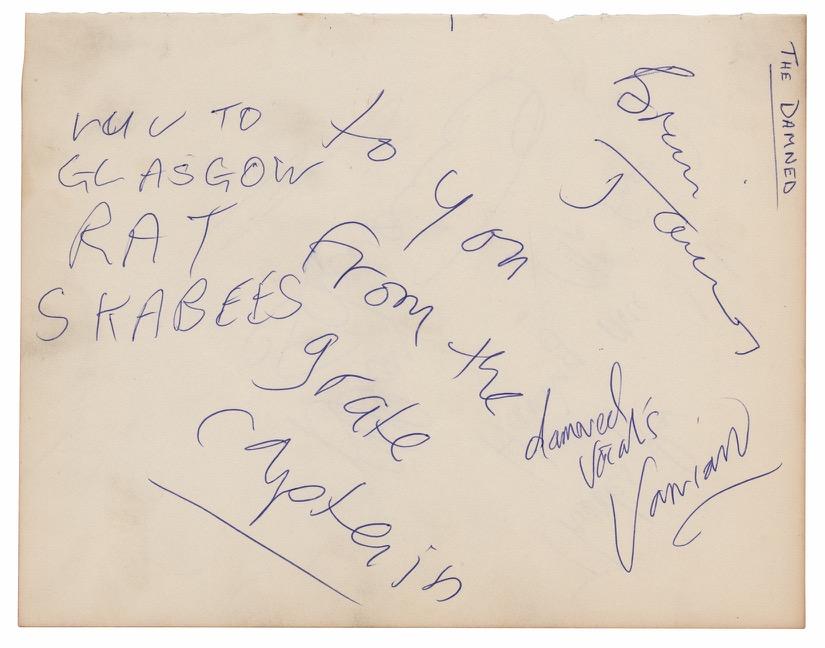 THE DAMNED
TO
GLASGOW
RAT
SKABEES
to
you
from
the
grate
Captain
Brian
James
damned
vocal's
Vanian